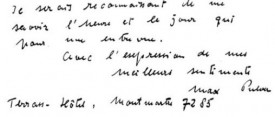 Je serais reconnaissant de me
savoir l'heure et le jour qui
pour une entrevue.
Avec l'expression de mes
meilleurs sentiments
Max
Terrass-Hôtel, Montmartre 7285